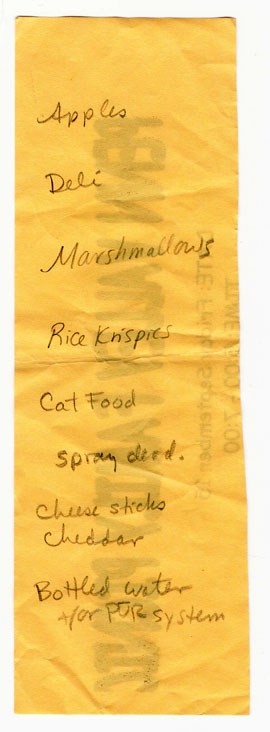 Apples
Deli
Marshmallows
Rice Krispies
Cat Food
spray deod.
Cheese sticks
Cheddar
Bottled water
+/or PUR system